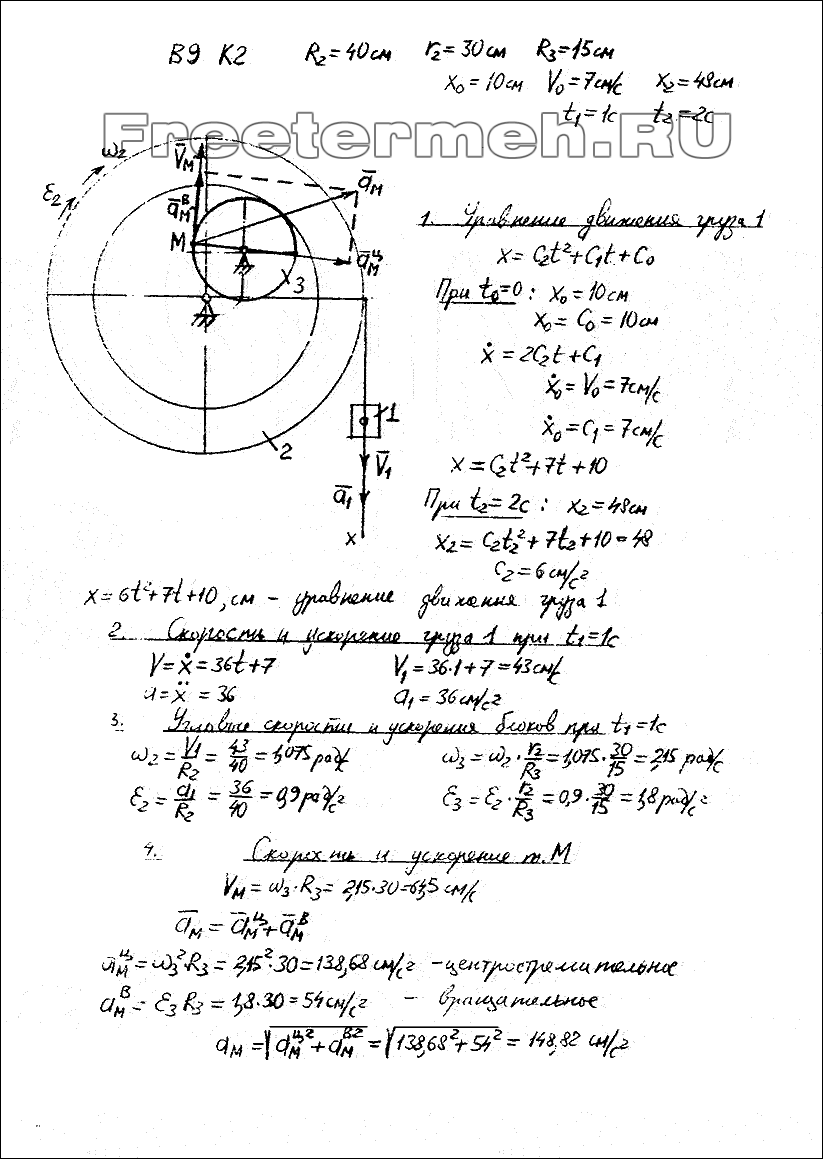 В9 К2 R₂=40см r₂=30см R₃=15см
x₀=10см V₀=7см/с x₂=48см
t₁=1с t₂=2с
Freetermeh.RU
ω₂
V̄м
āм
ε₂
āмᴮ
М
āмᶣ
3
1
2
V̄₁
ā₁
x
1. Уравнение движения груза 1
x=C₂t²+C₁t+C₀
При t₀=0: x₀=10см
x₀=C₀=10см
ẋ=2C₂t+C₁
ẋ₀=V₀=7см/с
ẋ₀=C₁=7см/с
x=C₂t²+7t+10
При t₂=2с: x₂=48см
x₂=C₂t₂²+7t₂+10=48
C₂=6см/с²
x=6t²+7t+10, см – уравнение движения груза 1
2. Скорость и ускорение груза 1 при t₁=1с
V=ẋ=36t+7 V₁=36·1+7=43см/с
a=ẍ=36 a₁=36см/с²
3. Угловые скорости и ускорения блоков при t₁=1с
ω₂=V₁/R₂=43/40=1,075рад/с ω₃=ω₂·r₂/R₃=1,075·30/15=2,15 рад/с
ε₂=a₁/R₂=36/40=0,9рад/с² ε₃=ε₂·r₂/R₃=0,9·30/15=1,8рад/с²
4. Скорость и ускорение т.М
Vм=ω₃·R₃=2,15·30=64,5 см/с
āм=āмᶣ+āмᴮ
āмᶣ=ω₃²R₃=2,15²·30=138,68 см/с² – центростремительное
aмᴮ=ε₃R₃=1,8·30=54см/с² – вращательное
aм=√(aмᶣ²+aмᴮ²)=√(138,68²+54²)=148,82 см/с²